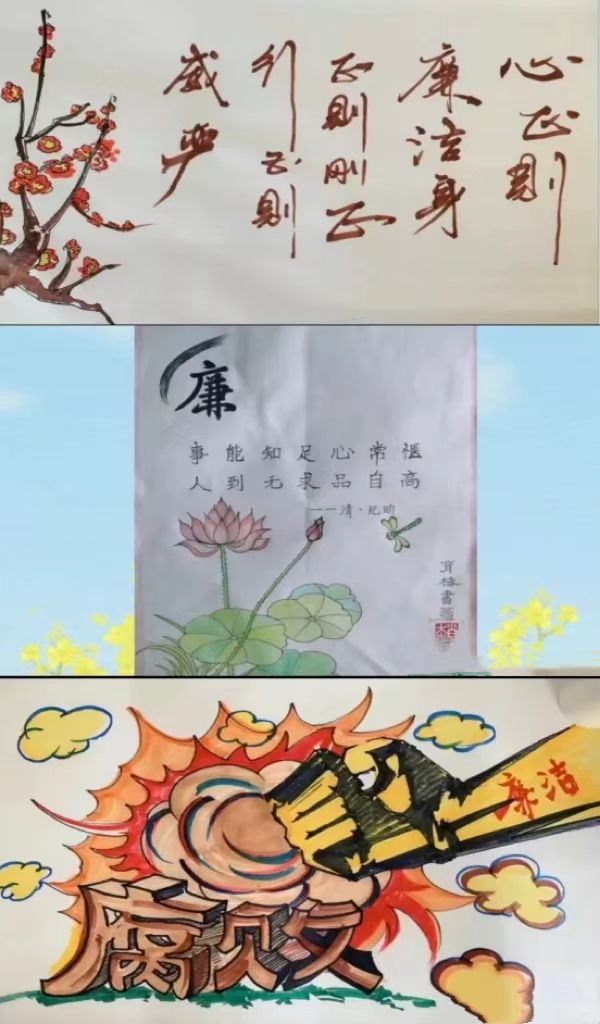 心正則
廉洁身
正則刚正
行正則
威严
廉
事能知足心常惬
人到无求品自高
——清·纪昀
廉洁
腐败